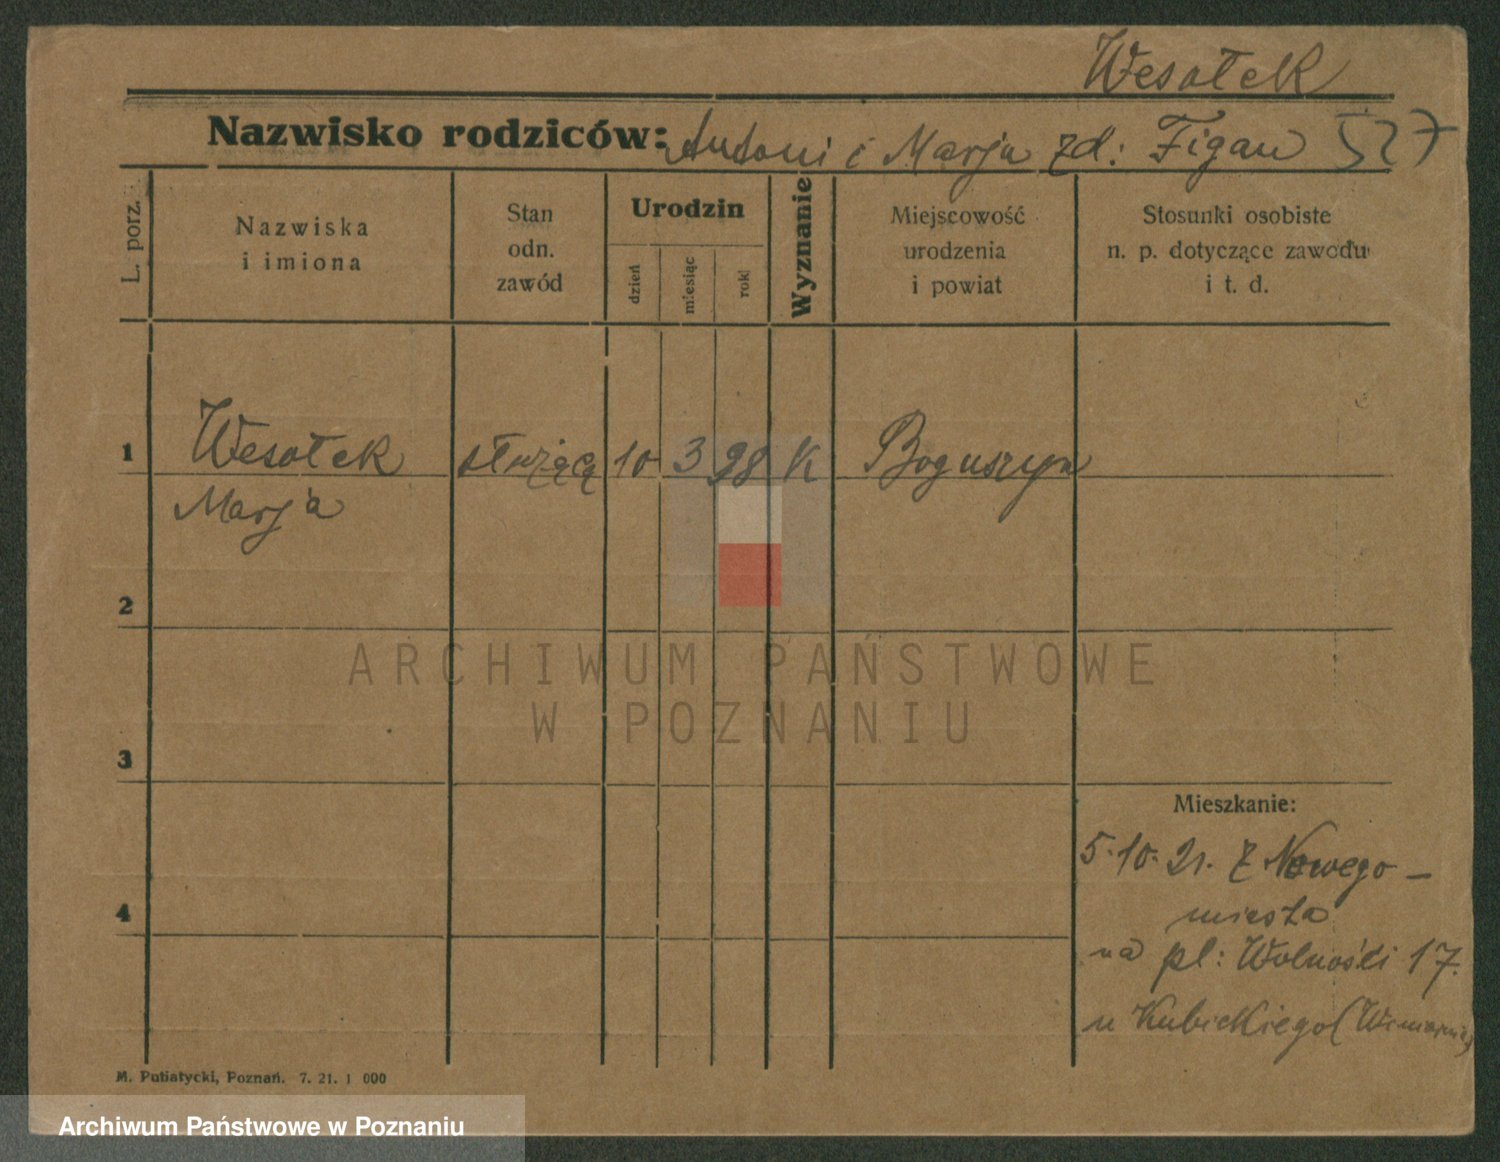 Wesołek
Nazwisko rodziców: Antoni i Marja zd: Figan 527
L. porz.
Nazwiska
i imiona
Stan
odn.
zawód
Urodzin
dzień
miesiąc
rok
Wyznanie
Miejscowość
urodzenia
i powiat
Stosunki osobiste
n. p. dotyczące zawodu
i t. d.
1 Wesołek służącą 10 3 98 K Boguszyn
Marja
2
ARCHIWUM PAŃSTWOWE
W POZNANIU
3
Mieszkanie:
5.10.21. Z Nowego-
4
miesta
na pl: Wolności 17.
u Kubickiego
M. Putiatycki, Poznań. 7. 21. 1 000
Archiwum Państwowe w Poznaniu